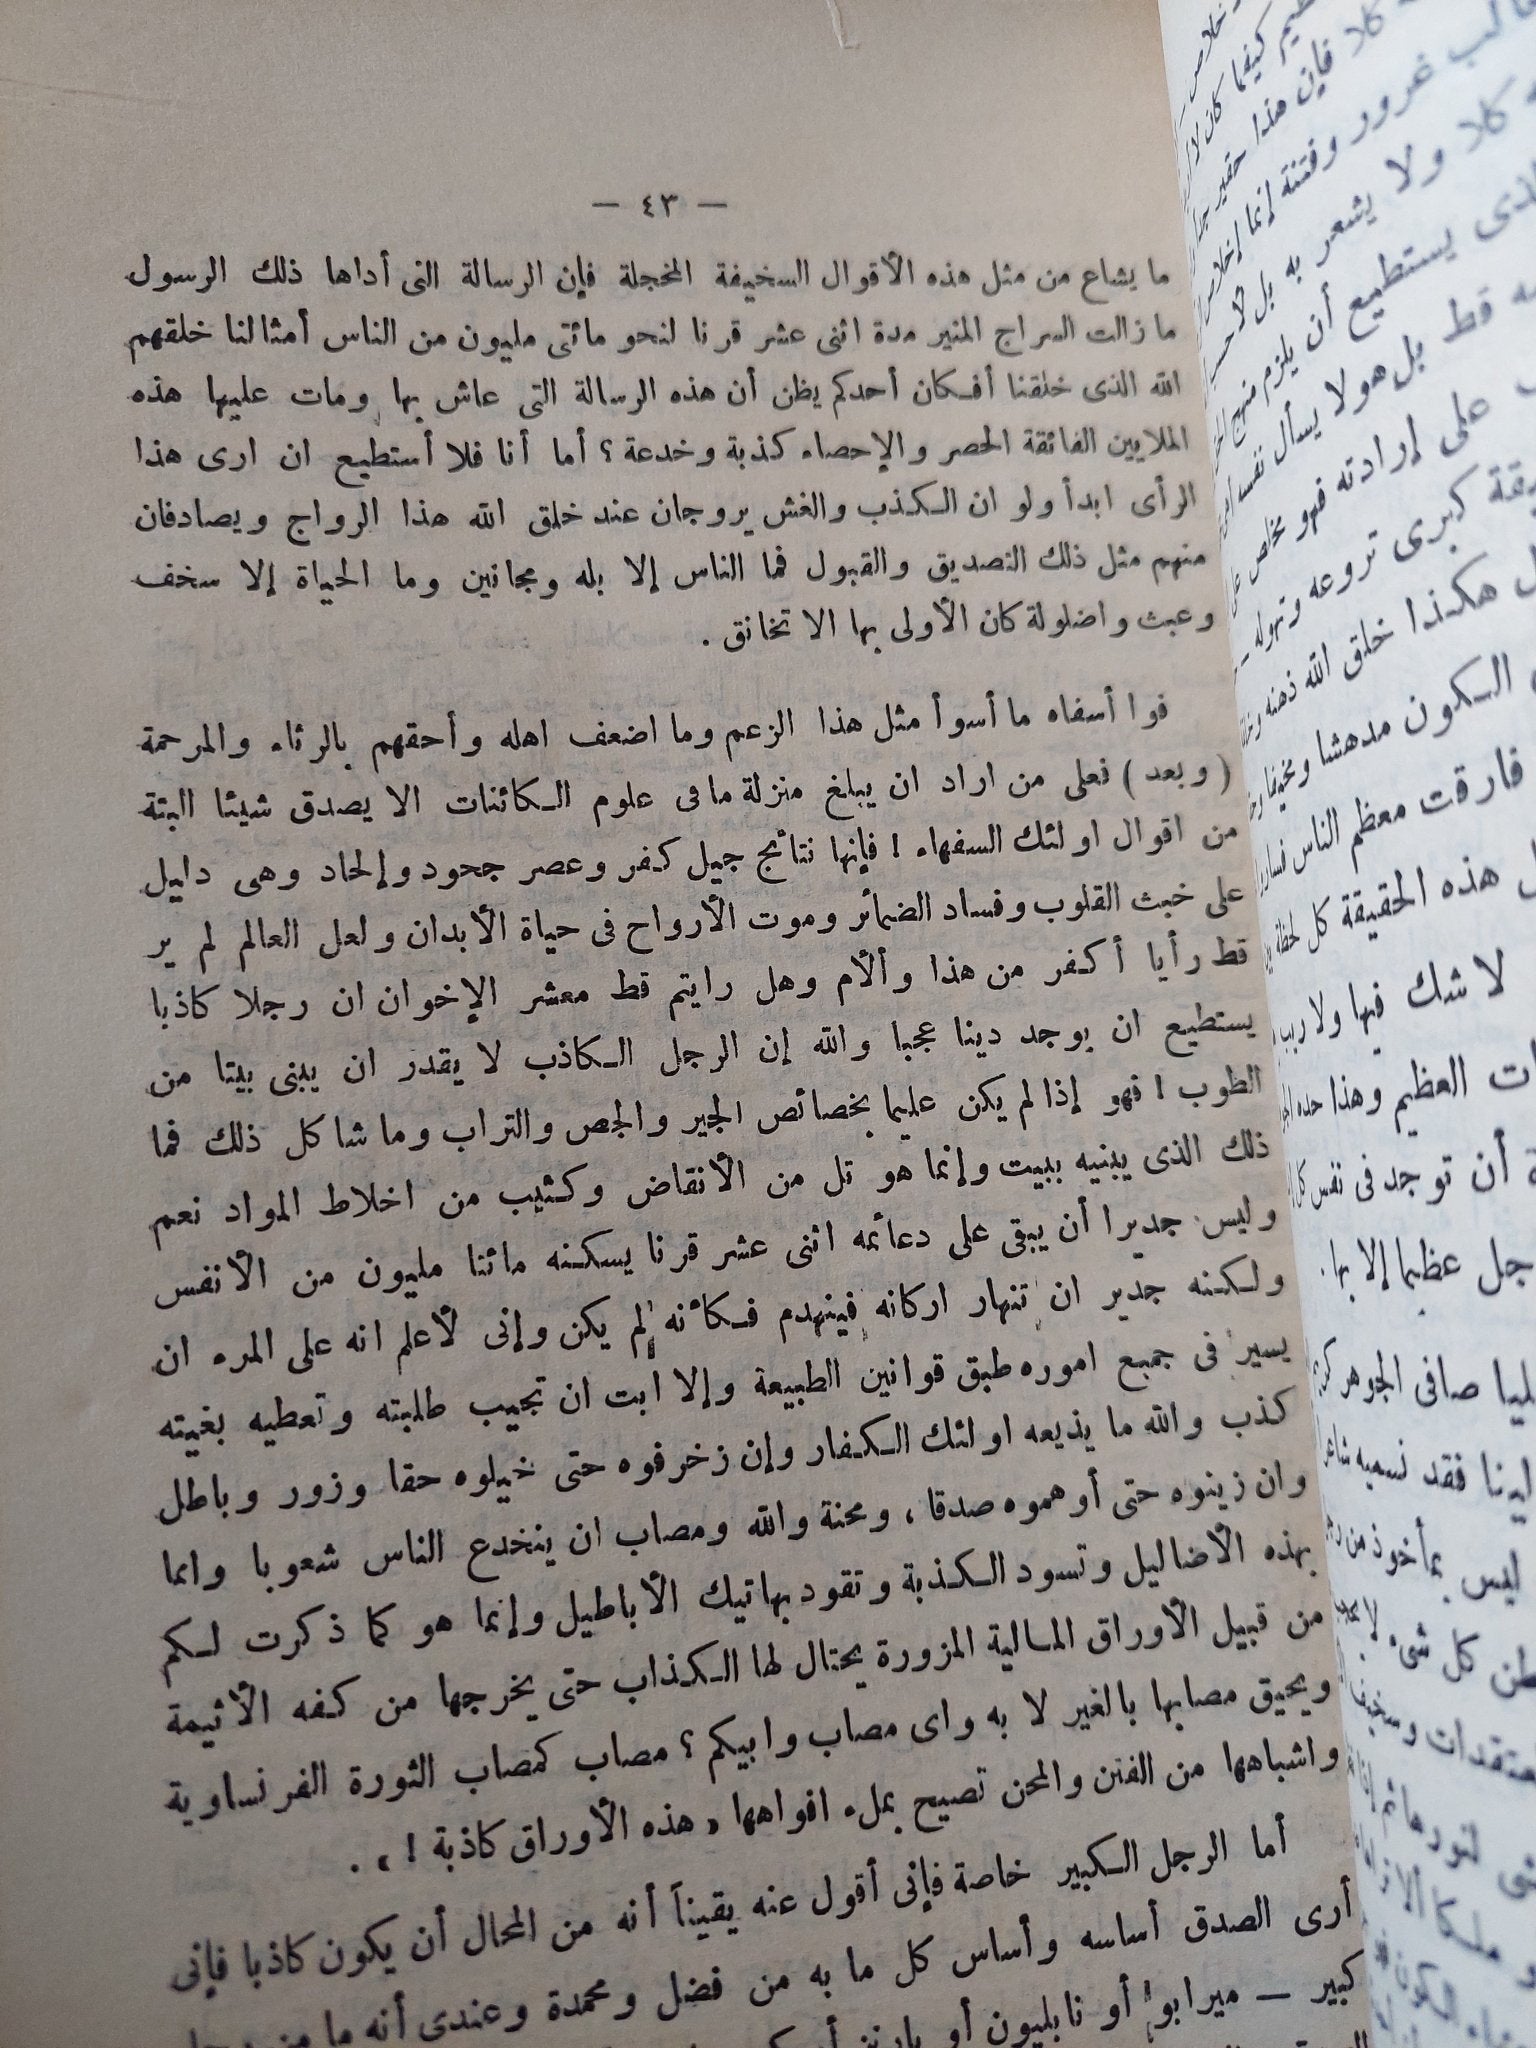 — ٤٣ —
ما يشاع من مثل هذه الأقوال السخيفة المخجلة فإن الرسالة التى أداها ذلك الرسول
ما زالت السراج المنير مدة اثنى عشر قرنا لنحو مائتى مليون من الناس أمثالنا خلقهم
الله الذى خلقنا أفكان أحدكم يظن أن هذه الرسالة التى عاش بها ومات عليها هذه
الملايين الفائقة الحصر والإحصاء كذبة وخدعة ؟ أما أنا فلا أستطيع ان ارى هذا
الرأى ابدأ ولو ان الكذب والغش يروجان عند خلق الله هذا الرواج ويصادفان
منهم مثل ذلك التصديق والقبول فما الناس إلا بله ومجانين وما الحياة إلا سخف
وعبث واضلولة كان الأولى بها الا تخانق .
فوا أسفاه ما أسوأ مثل هذا الزعم وما اضعف اهله وأحقهم بالرثاء والمرحمة
( وبعد ) فعلى من اراد ان يبلغ منزلة ما فى علوم الكائنات الا يصدق شيئا البتة
من اقوال اولئك السفهاء ! فإنها نتائج جيل كفر وعصر جحود وإلحاد وهى دليل
على خبث القلوب وفساد الضمائر وموت الأرواح فى حياة الأبدان ولعل العالم لم ير
قط رأيا أكفر من هذا وألأم وهل رايتم قط معشر الإخوان ان رجلا كاذبا
يستطيع ان يوجد دينا عجبا والله إن الرجل الكاذب لا يقدر ان يبنى بيتا من
الطوب ! فهو إذا لم يكن عليما بخصائص الجير والجص والتراب وما شاكل ذلك فما
ذلك الذى يبنيه ببيت وإنما هو تل من الأنقاض وكثيب من اخلاط المواد نعم
وليس جديرا أن يبقى على دعائمه اثنى عشر قرنا يسكنه مائتا مليون من الأنفس
ولكنه جدير ان تنهار اركانه فينهدم فكأنه لم يكن وإنى لأعلم انه على المرء ان
يسير فى جميع اموره طبق قوانين الطبيعة وإلا ابت ان تجيب طلبته وتعطيه بغيته
كذب والله ما يذيعه اولئك الكفار وإن زخرفوه حتى خيلوه حقا وزور وباطل
وان زينوه حتى أوهموه صدقا ، ومحنة والله ومصاب ان ينخدع الناس شعوبا وامما
بهذه الأضاليل وتسود الكذبة وتقود بهاتيك الأباطيل وإنما هو كما ذكرت لكم
من قبيل الأوراق المالية المزورة يحتال لها الكذاب حتى يخرجها من كفه الأثيمة
ويحيق مصابها بالغير لا به واى مصاب وابيكم ؟ مصاب كمصاب الثورة الفرنساوية
واشباهها من الفتن والمحن تصيح بملء افواهها « هذه الأوراق كاذبة ! » .
أما الرجل الكبير خاصة فإنى أقول عنه يقيناً أنه من المحال أن يكون كاذبا فإنى
أرى الصدق أساسه وأساس كل ما به من فضل ومحمدة وعندى أنه ما من
كبير — ميرابو أو نابليون أو